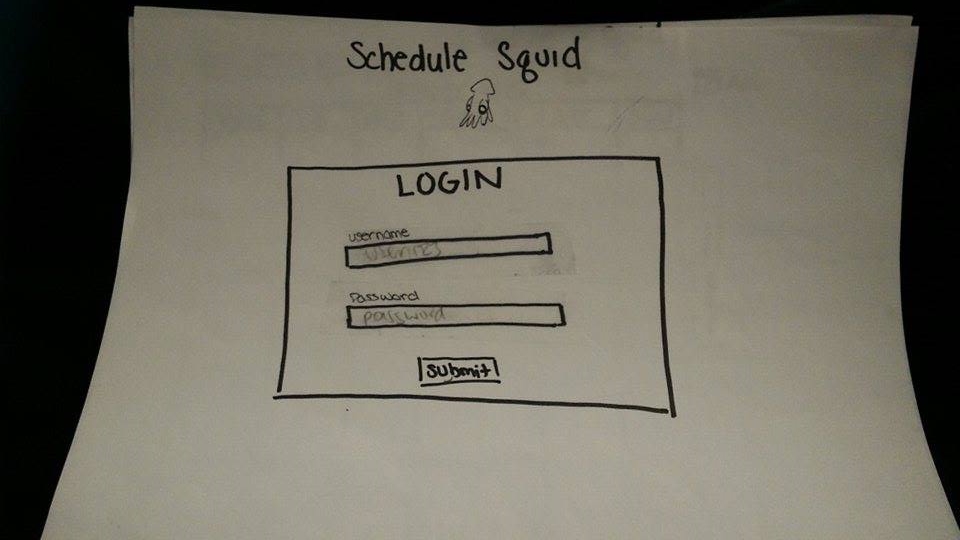 Schedule Squid
LOGIN
username
Password
password
submit